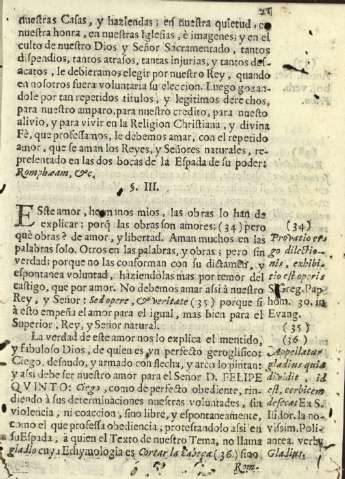 21
nuestras Casas, y haziendas; en nuestra quietud, en
nuestra honra, en nuestras Iglesias, è imagenes; y en el
culto de nuestro Dios y Señor Sacramentado, tantos
dispendios, tantos atrasos, tantas injurias, y tantos des-
acatos, le debieramos elegir por nuestro Rey, quando
en nosotros fuera voluntaria su eleccion. Luego gozan-
dole por tan repetidos titulos, y legitimos derechos,
para nuestro amparo, para nuestro credito, para nuestro
alivio, y para vivir en la Religion Christiana, y divina
Fè, que professamos, le debemos amar, con el repetido
amor, que se aman los Reyes, y Señores naturales, re-
presentado en las dos bocas de la Espada de su poder:
Romphæam, &c.
§. III.
ESte amor, hermanos mios, las obras lo han de
explicar: porq̃ las obras son amores: (34) pero
què obras? de amor, y libertad. Aman muchos en las
palabras solo. Otros en las palabras, y obras; pero sin
verdad: porque no las conforman con su dictamen, y
espontanea voluntad, haziendolas mas por temor del
castigo, que por amor. No debemos amar assi à nuestro
Rey, y Señor: Sed opere, & veritate (35) porque si
à esto empeña el amor para el igual, mas bien para el
Superior, Rey, y Señor natural.
La verdad de este amor nos lo explica el mentido,
y fabuloso Dios, de quien es vn perfecto geroglifico:
Ciego, desnudo, y armado con flecha, y arco lo pintan:
y assi debe ser nuestro amor para el Señor D. FELIPE
QVINTO: Ciego, como de perfecto obediente, rin-
diendo à sus determinaciones nuestras voluntades, sin
violencia, ni coaccion, sino libre, y espontaneamente,
como el que professa obediencia, protestandolo assi en
su Espada, à quien el Texto de nuestro Tema, no llama
gladio cuya Ethymologia es Cortar la cabeça (36) sino
Rom-
(34)
Probatio er-
go dilectio-
nis, exhibi-
tio est operis
S. Greg. Pap.
hom. 30. in
Evang.
(35)
(36)
gladius quia
dividit, id
est, cervicem
Ex S.
Isidor. la no-
vissim. Poli-
antea. verb.
Gladius.